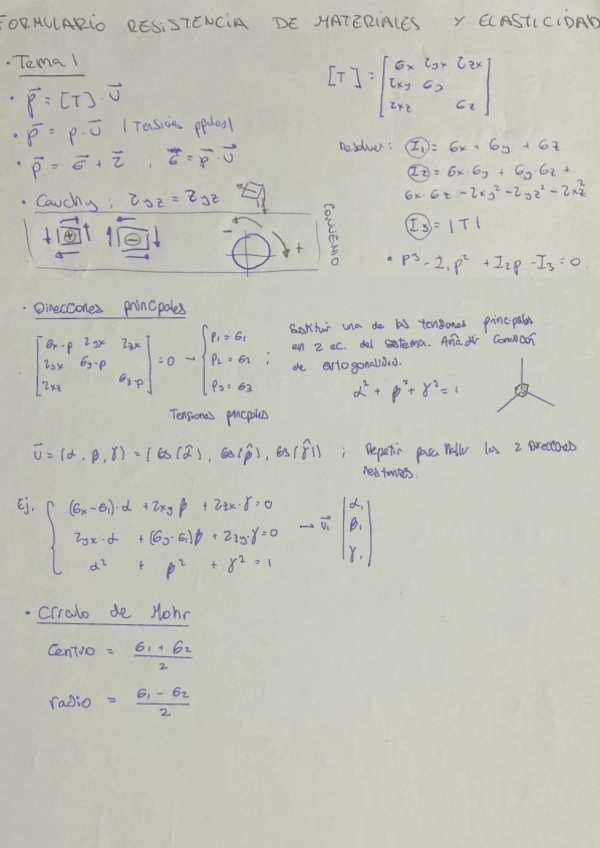 FORMULARIO RESISTENCIA DE MATERIALES Y ELASTICIDAD
· Tema 1
· p⃗ = [T] · u⃗
· p⃗ = p · u⃗ (Tensións ppales)
· p⃗ = σ⃗ + τ⃗ , σ⃗ = p⃗ · u⃗
· Cauchy; τyz = τyz
⊕ ⊖ - +
CONVENIO
[T] = [ σx τyx τzx
τxy σy
τxz σz ]
Resolver: I1 = σx + σy + σz
I2 = σx·σy + σy·σz +
σx·σz - τxy² - τyz² - τxz²
I3 = |T|
· p³ - I1p² + I2p - I3 = 0.
· Direcciones principales
[ σx-p τyx τzx
τyx σy-p
τxz σz-p ] = 0 → { p1 = σ1
p2 = σ2 ;
p3 = σ3
Tensiones principales
Sustituir una de las tensiones principales
en 2 ec. del sistema. Añadir condición
de ortogonalidad.
α² + β² + γ² = 1
u⃗ = (α, β, γ) = (cos(α̂), cos(β̂), cos(γ̂)) ; Repetir para hallar las 2 direcciones
restantes.
Ej. { (σx-σ1)·α + τxy β + τzx·γ = 0
τyx·α + (σy-σ1)β + τzy·γ = 0 → u⃗1 | α1 β1 γ1 |
α² + β² + γ² = 1
· Círculo de Mohr
Centro = σ1 + σ2 / 2
radio = σ1 - σ2 / 2